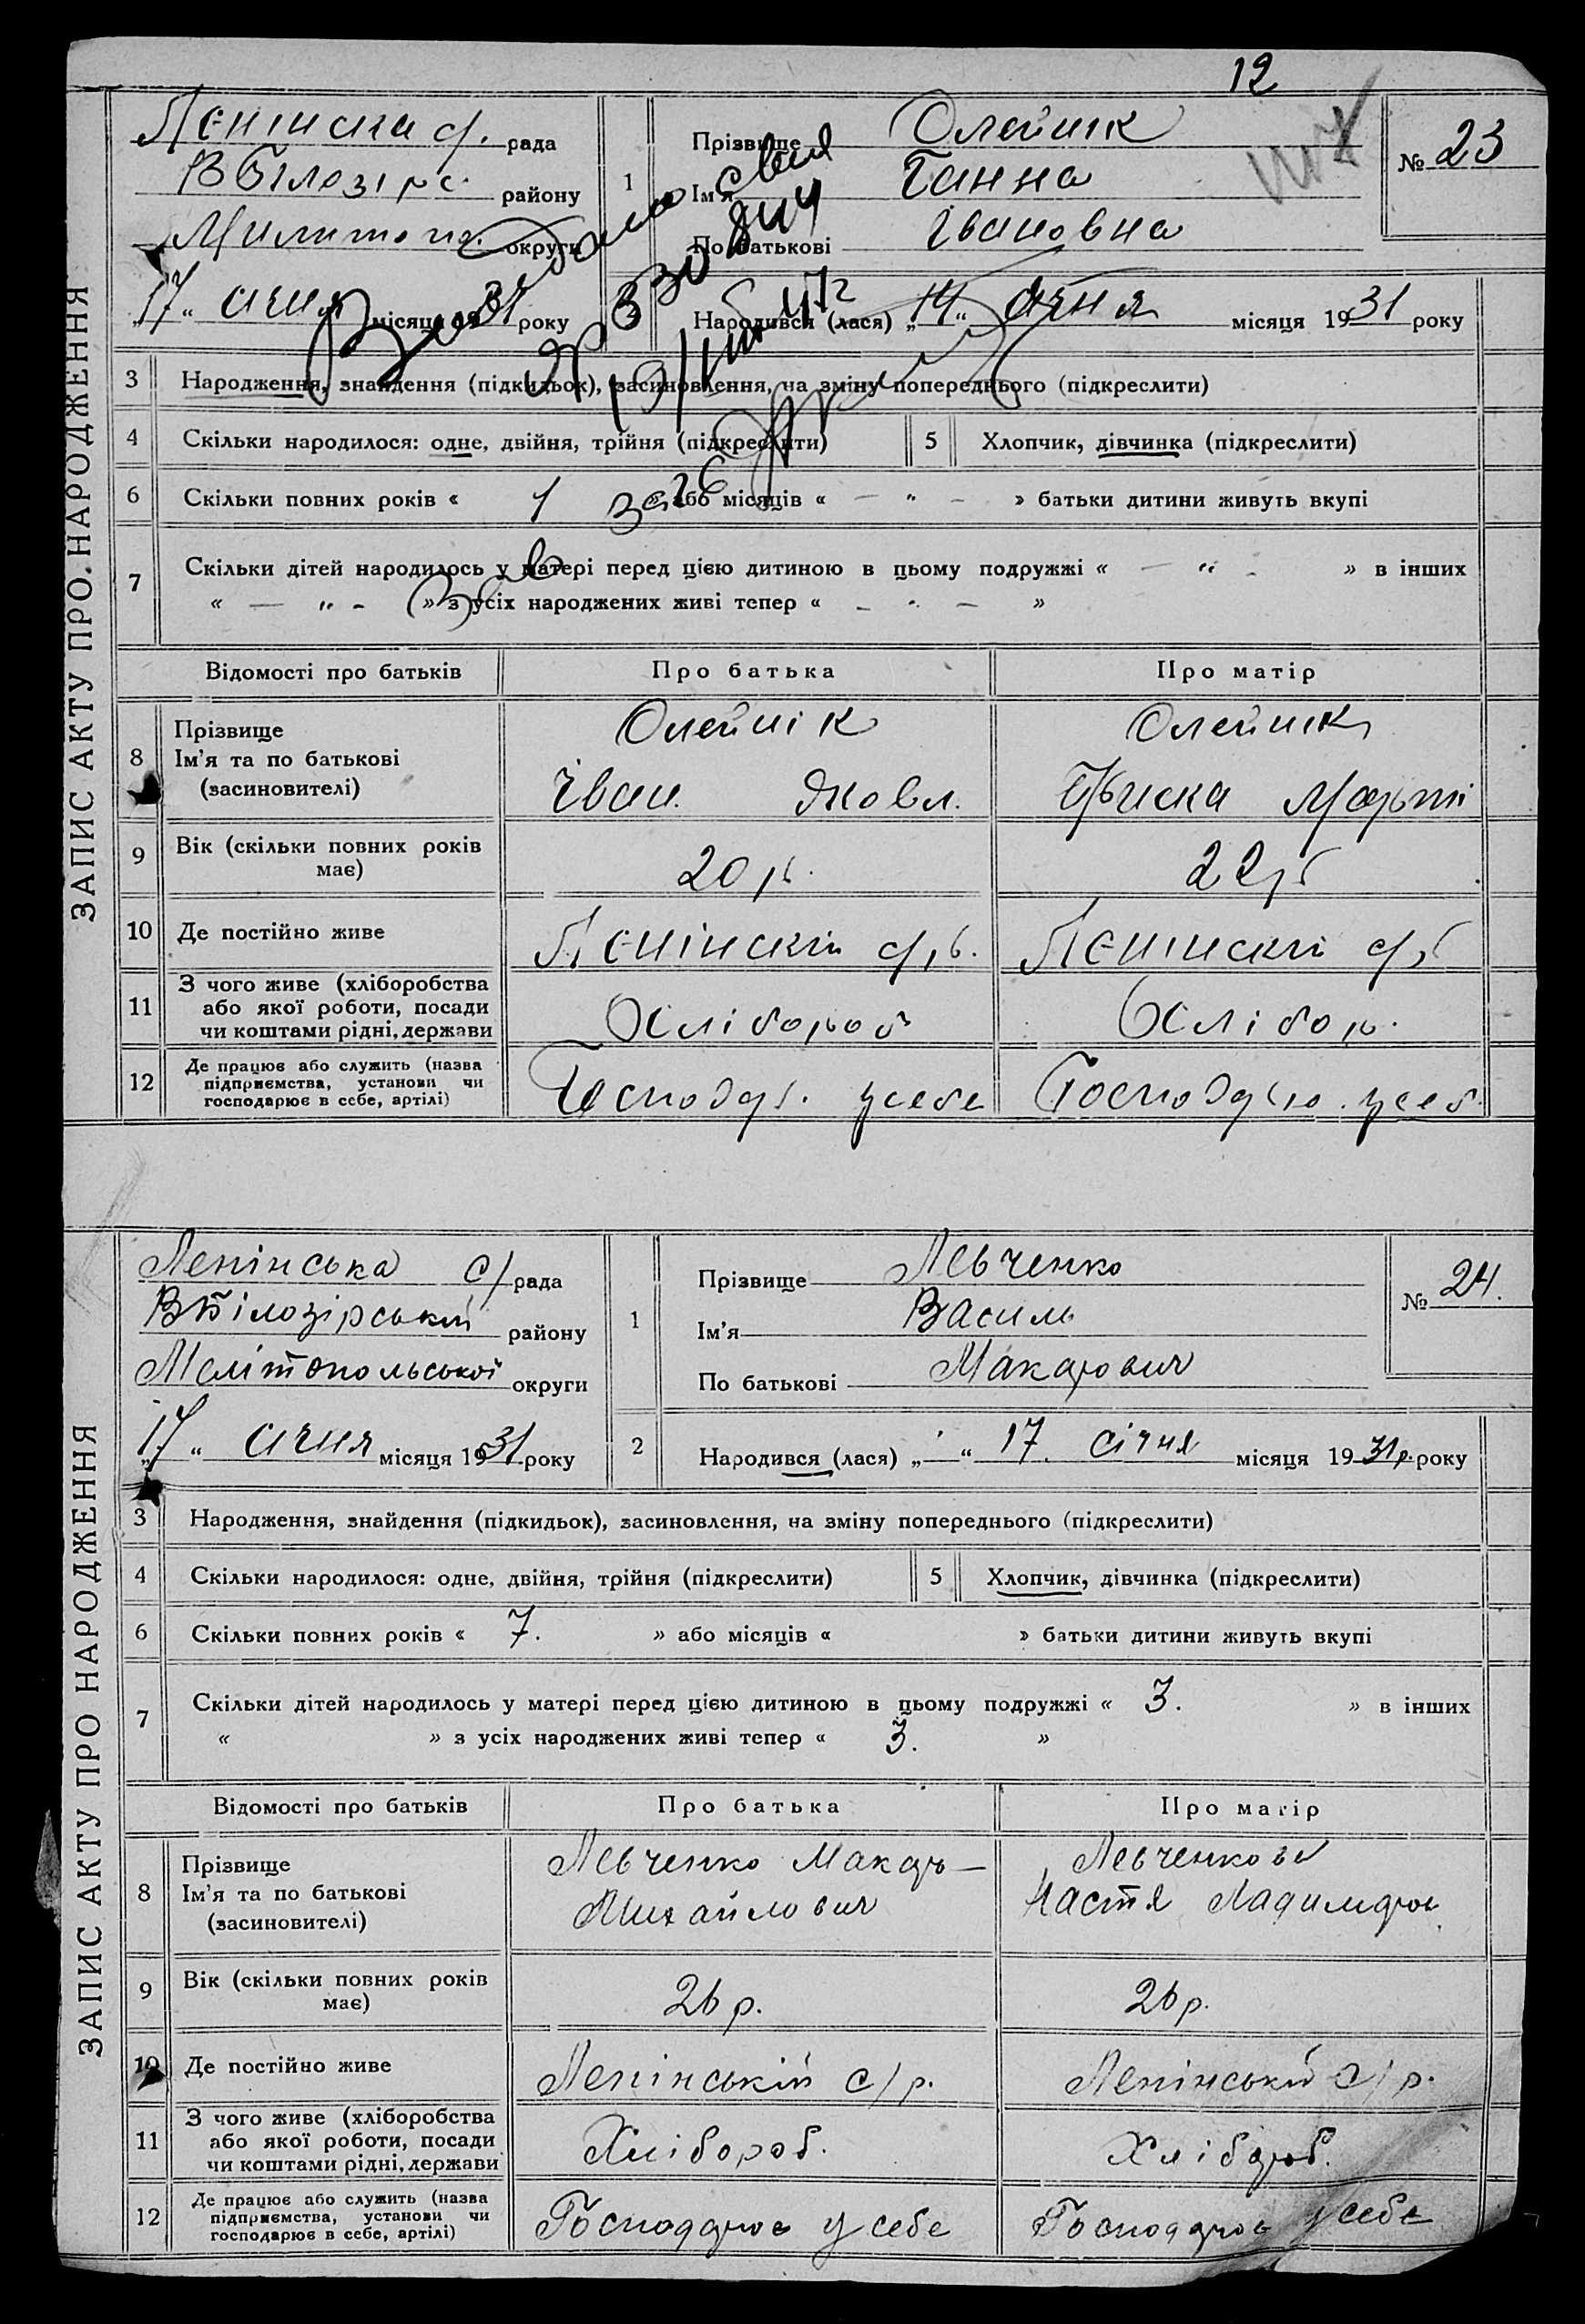 12
ЗАПИС АКТУ ПРО НАРОДЖЕННЯ
Ленінска с/. рада
В Білозірс. району
округи
„17“ січня місяця 1931 року
1
Прізвище Олейник
Ім'я Ганна
По батькові Івановна
№ 23
2
Народився (лася) „14“ січня місяця 1931 року
3 Народження, знайдення (підкидьок), засиновлення, на зміну попереднього (підкреслити)
4 Скільки народилося: одне, двійня, трійня (підкреслити) 5 Хлопчик, дівчинка (підкреслити)
6 Скільки повних років « 1 » або місяців « — " — » батьки дитини живуть вкупі
7 Скільки дітей народилось у матері перед цією дитиною в цьому подружжі « — " - » в інших
« — " - » з усіх народжених живі тепер « — " — »
Відомості про батьків Про батька Про матір
8 Прізвище Ім'я та по батькові (засиновителі)
Олейнік Олейник
Іван. Яковл.
9 Вік (скільки повних років має) 20 р. 22 р
10 Де постійно живе Ленінскій с/р. Ленінскій с/р
11 З чого живе (хліборобства або якої роботи, посади чи коштами рідні, держави Хлібороб Хлібор.
12 Де працює або служить (назва підприємства, установи чи господарює в себе, артілі) Господ. усебе Господарю. усеб.
ЗАПИС АКТУ ПРО НАРОДЖЕННЯ
Ленінська с/ рада
ВБілозірський району
Мелітопольської округи
„17“ січня місяця 1931 року
1
Прізвище Левченко
Ім'я Василь
По батькові Макарович
№ 24.
2
Народився (лася) „—“ 17. січня місяця 1931р. року
3 Народження, знайдення (підкидьок), засиновлення, на зміну попереднього (підкреслити)
4 Скільки народилося: одне, двійня, трійня (підкреслити) 5 Хлопчик, дівчинка (підкреслити)
6 Скільки повних років « 7. » або місяців « » батьки дитини живуть вкупі
7 Скільки дітей народилось у матері перед цією дитиною в цьому подружжі « 3. » в інших
« » з усіх народжених живі тепер « 3. »
Відомості про батьків Про батька Про матір
8 Прізвище Ім'я та по батькові (засиновителі)
Левченко Макар
Михайлович
Настя
9 Вік (скільки повних років має) 26 р. 26 р.
10 Де постійно живе Ленінській с/р. Ленінській с/р.
11 З чого живе (хліборобства або якої роботи, посади чи коштами рідні, держави Хлібороб. Хлібороб.
12 Де працює або служить (назва підприємства, установи чи господарює в себе, артілі) Господарює у себе Господарює у себе